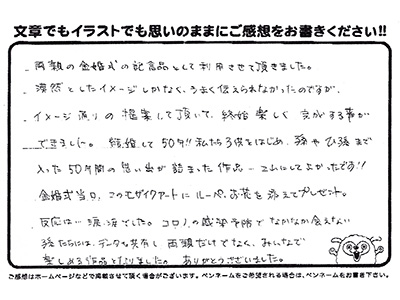 文章でもイラストでも思いのままにご感想をお書きください!!
両親の金婚式の記念品として利用させて頂きました。
漠然としたイメージしかなく、うまく伝えられなかったのですが、
イメージ通りの提案して頂いて、終始楽しく文がする事が
できました。結婚して50年!!私たち3人をはじめ、孫やひ孫まで
入った50年間の思い出が詰まった作品…ココにしてよかったです!!
金婚式当日、このモザイクアートにルーペ、お花を添えてプレゼント。
反応は…涙、涙でした。コロナの感染予防でなかなか会えない
孫たちには、データを共有し両親だけでなく、みんなで
楽しめる作品となりました。ありがとうございました。
ご感想はホームページなどで掲載させて頂く場合がございます。ペンネームをご希望される場合は、ペンネームをお書き下さい。